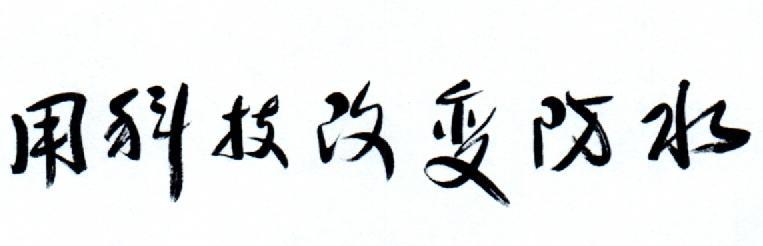 用科技改变防水